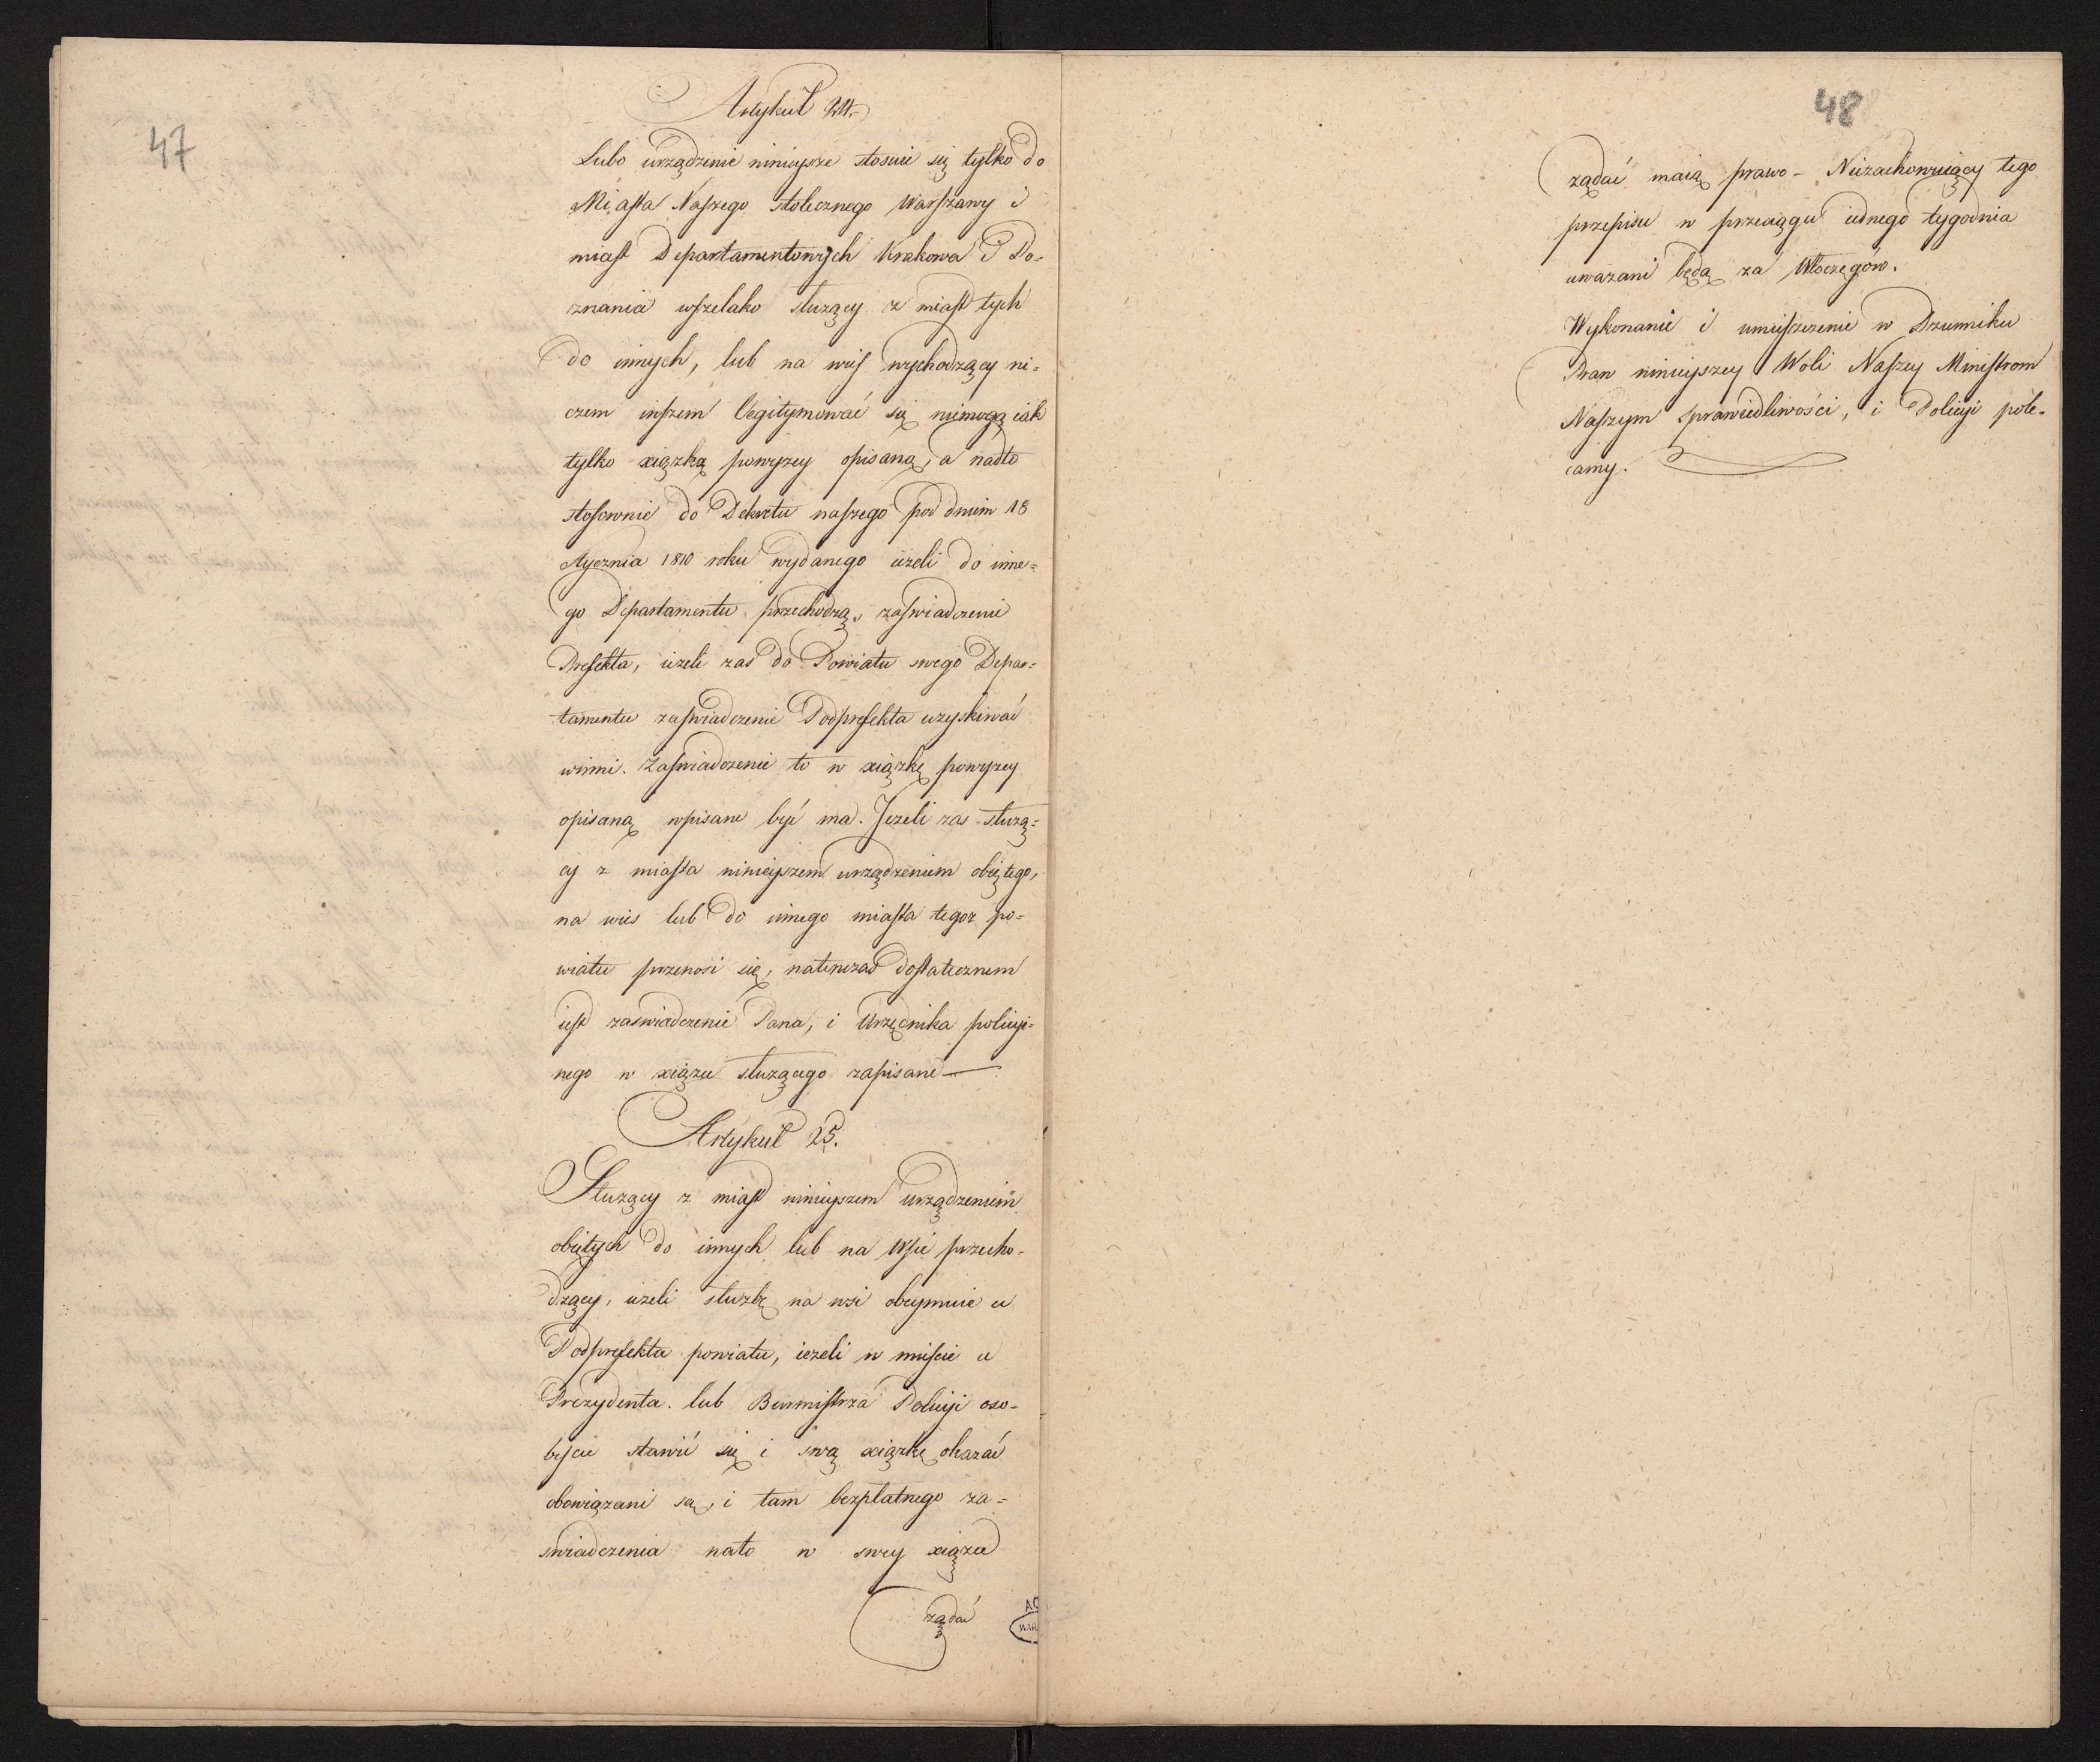 47
Artykuł 24.
Lubo urządzenie ninieysze stosuie się tylko do
Miasta Naszego stołecznego Warszawy i
miast Departamentowych Krakowa i Po-
znania wszelako słuzący z miast tych
do innych, lub na wieś wychodzący ni-
czem inszem legitymować się niemogą iak
tylko xiązką powyzey opisaną, a nadto
stosownie do Dekretu naszego pod dniem 18
Stycznia 1810 roku wydanego iezeli do inne-
go Departamentu przechodzą, zaswiadczenie
Prefekta, iezeli zas do Powiatu swego Depar-
tamentu zaswiadczenie Podprefekta uzyskiwać
winni. Zaswiadczenie to w xiązkę powyzey
opisaną wpisane być ma. Jezeli zas słuzą-
cy z miasta ninieyszem urządzeniem obiętego,
na wies lub do innego miasta tegoz po-
wiatu przenosi się, natenczas dostatecznem
iest zaswiadczenie Pana, i Urzędnika policyi-
nego w xiązce słuzącego zapisane
Artykuł 25.
Słuzący z miast ninieyszem urządzeniem
obiętych do innych lub na Wsie przecho-
dzący, iezeli słuzbę na wsi obeymuie u
Podprefekta powiatu, iezeli w mieście u
Prezydenta. lub Burmistrza Policyi oso-
biście stawić się i swą xiązkę okazać
obowiązani są, i tam bezpłatnego za-
swiadczenia nato w swey xiązce
ządać
48
ządać maią prawo - Niezachowuiący tego
przepisu w przeciągu iednego tygodnia
uwazani będą za Włoczęgów.
Wykonanie i umieszczenie w Dzienniku
Praw ninieyszey Woli Naszey Ministrom
Naszym Sprawiedliwości, i Policyi pole-
camy.